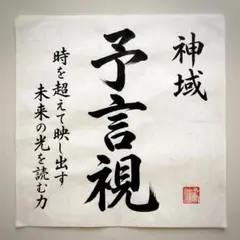 神域
予言視
時を超えて映し出す
未来の光を読む力